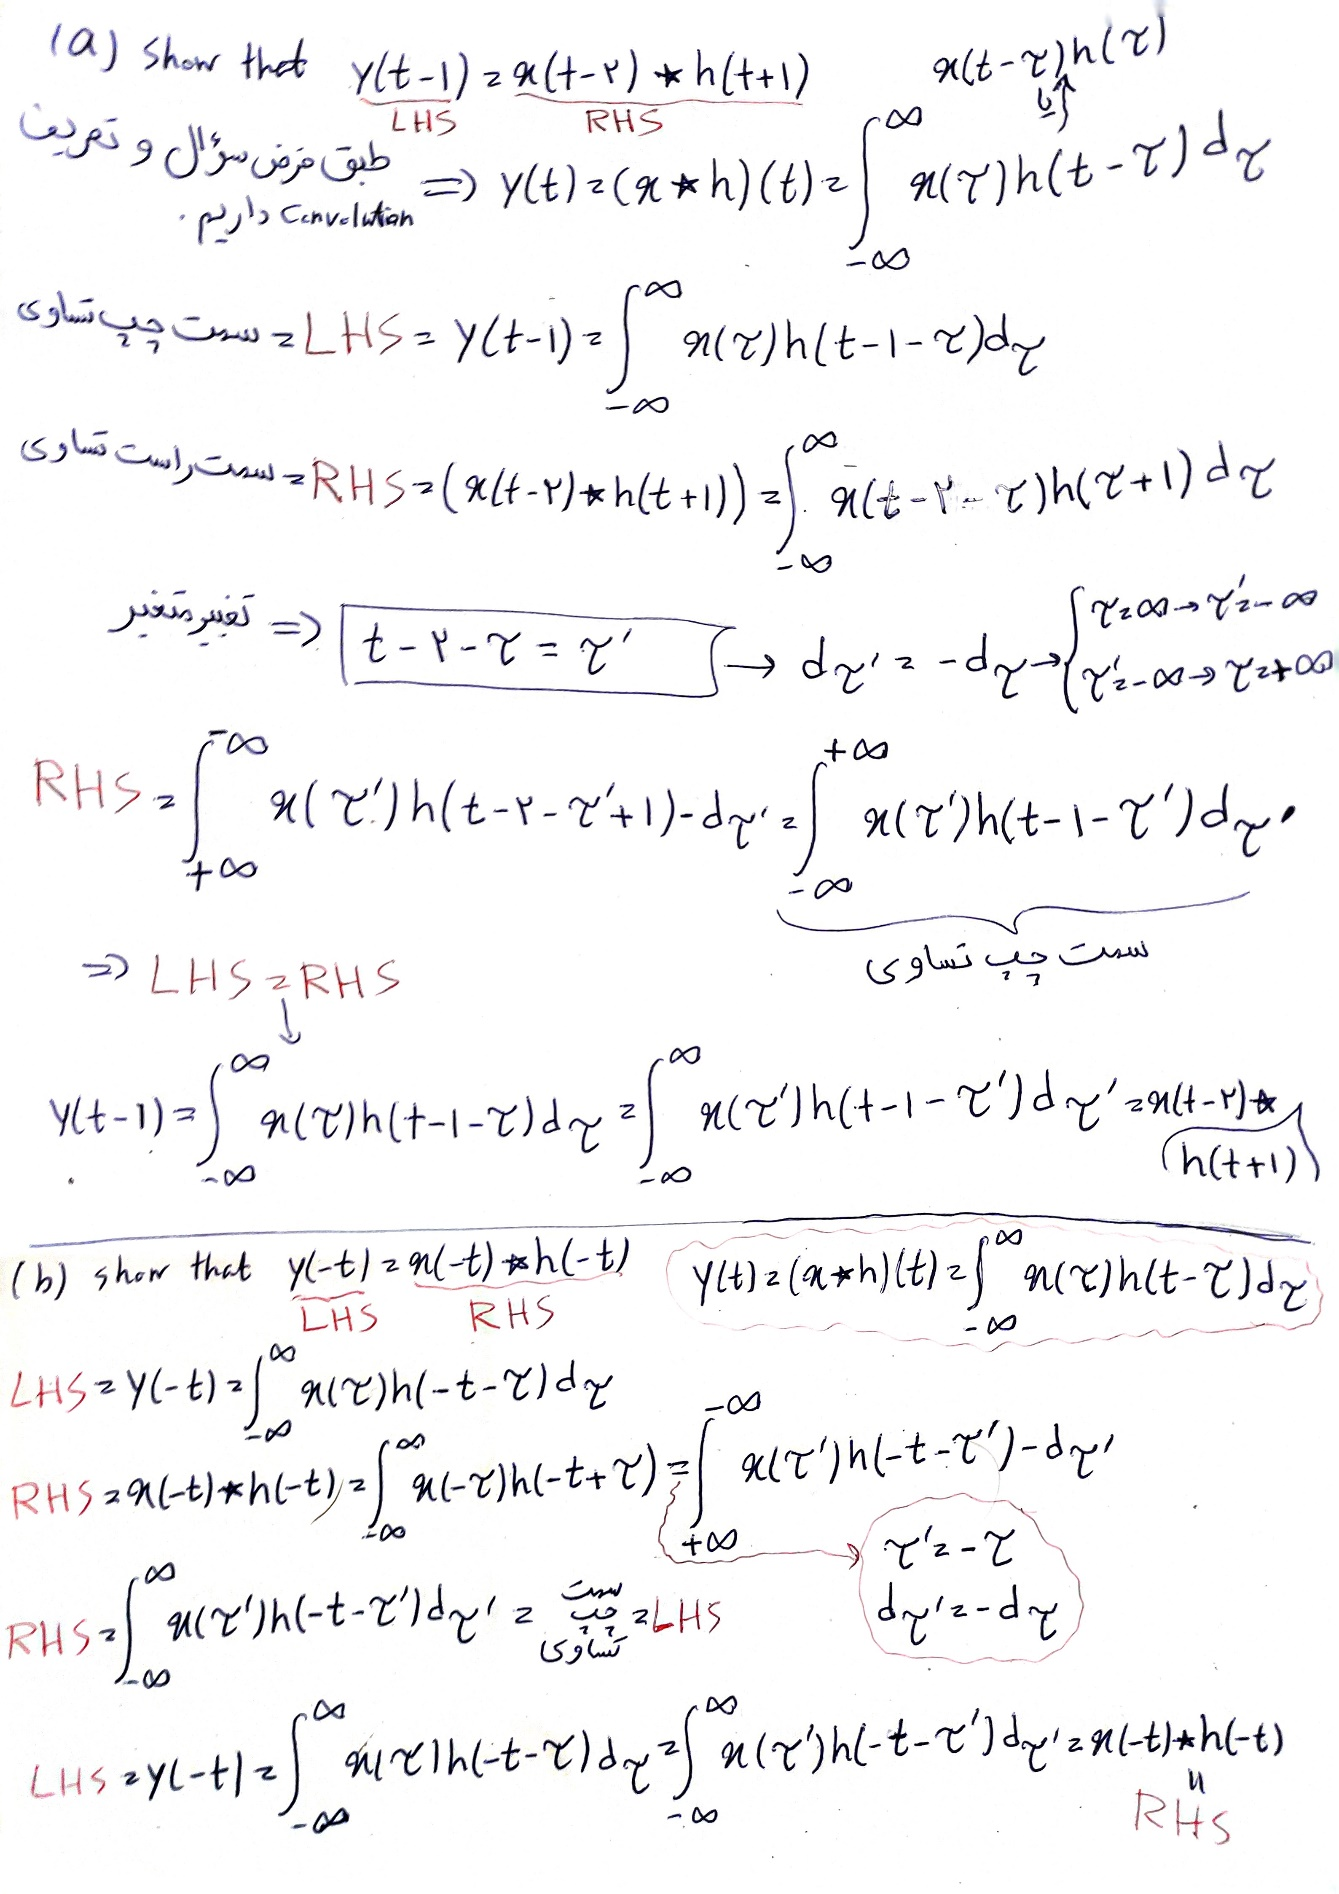 (a) show that y(t-1) = x(t-۲) * h(t+1)    x(t-τ)h(τ)
LHS    RHS    یا
طبق فرض سؤال و تعریف
convolution داریم. => y(t) = (x * h)(t) = ∫_{-∞}^{∞} x(τ)h(t-τ)dτ
سمت چپ تساوی = LHS = y(t-1) = ∫_{-∞}^{∞} x(τ)h(t-1-τ)dτ
سمت راست تساوی = RHS = (x(t-۲) * h(t+1)) = ∫_{-∞}^{∞} x(t-۲-τ)h(τ+1)dτ
تغییر متغیر => t-۲-τ = τ' → dτ' = -dτ → { τ=∞ → τ'=-∞
τ'=-∞ → τ=+∞
RHS = ∫_{+∞}^{-∞} x(τ')h(t-۲-τ'+1)-dτ' = ∫_{-∞}^{+∞} x(τ')h(t-1-τ')dτ'
سمت چپ تساوی
=> LHS = RHS
↓
y(t-1) = ∫_{-∞}^{∞} x(τ)h(t-1-τ)dτ = ∫_{-∞}^{∞} x(τ')h(t-1-τ')dτ' = x(t-۲) *
h(t+1)
(b) show that y(-t) = x(-t) * h(-t)    y(t) = (x * h)(t) = ∫_{-∞}^{∞} x(τ)h(t-τ)dτ
LHS    RHS
LHS = y(-t) = ∫_{-∞}^{∞} x(τ)h(-t-τ)dτ
RHS = x(-t) * h(-t) = ∫_{-∞}^{∞} x(-τ)h(-t+τ) = ∫_{+∞}^{-∞} x(τ')h(-t-τ')-dτ'
τ' = -τ
dτ' = -dτ
RHS = ∫_{-∞}^{∞} x(τ')h(-t-τ')dτ' = سمت چپ تساوی = LHS
LHS = y(-t) = ∫_{-∞}^{∞} x(τ)h(-t-τ)dτ = ∫_{-∞}^{∞} x(τ')h(-t-τ')dτ' = x(-t) * h(-t)
=
RHS